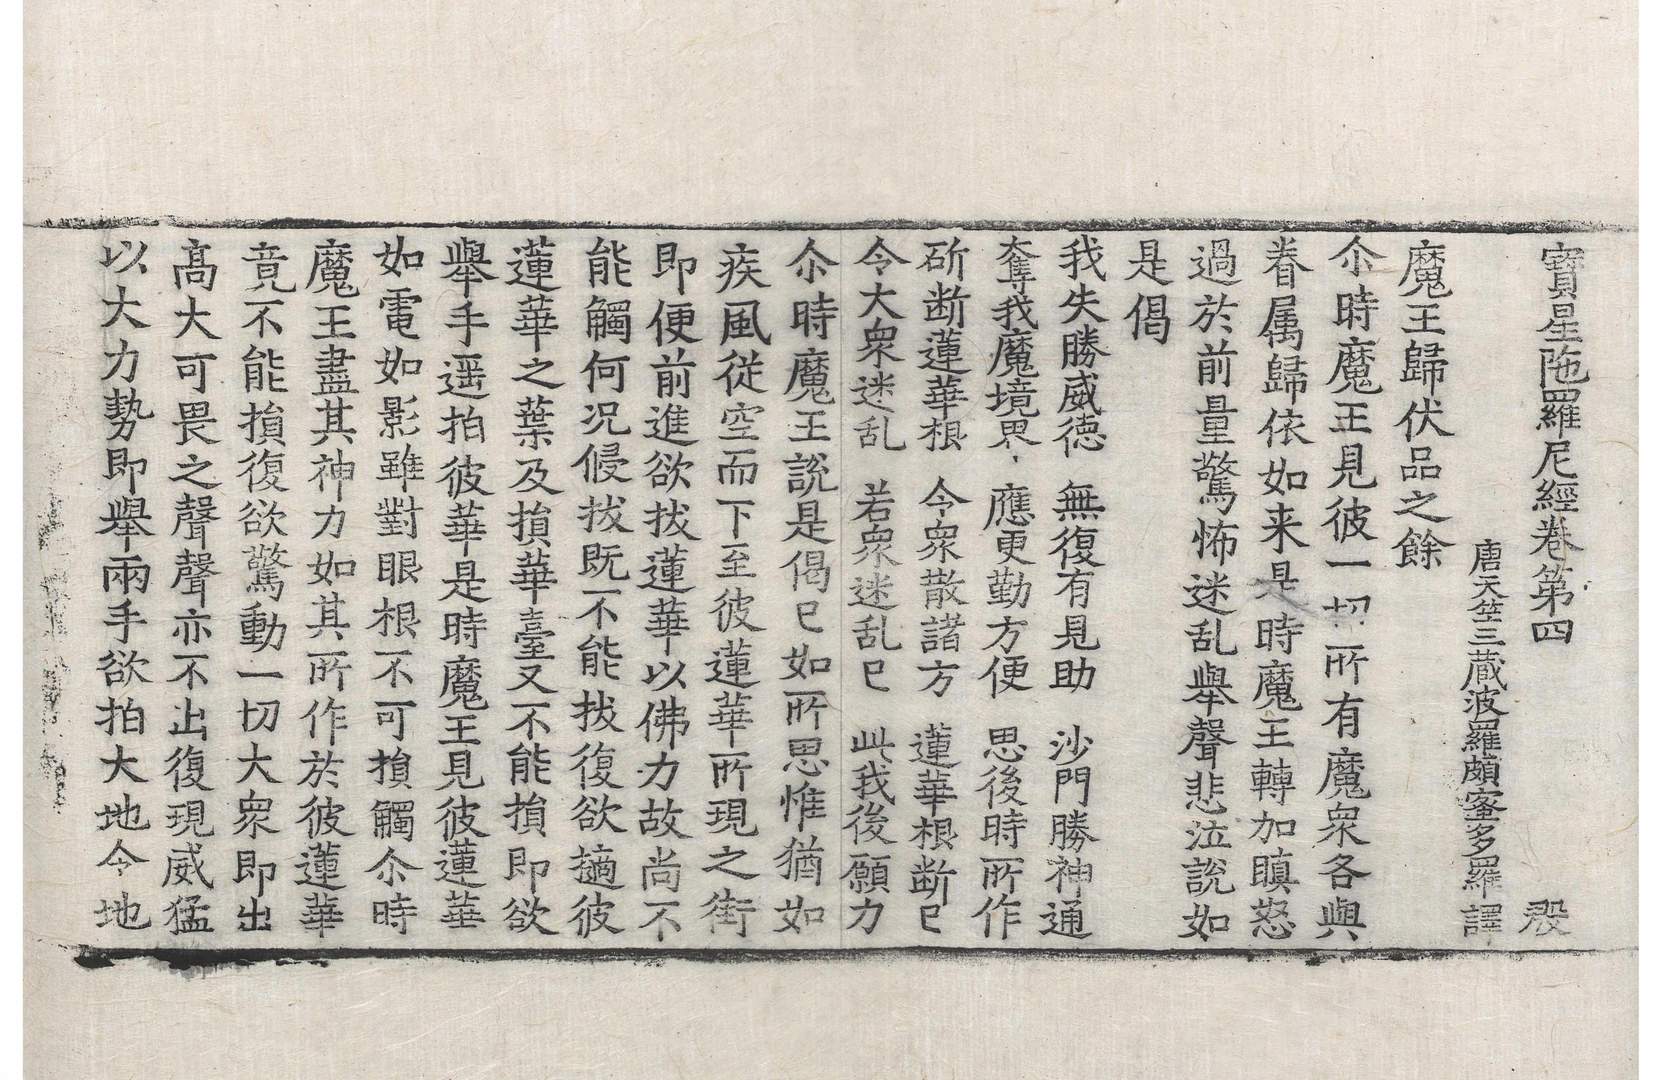 寶星陁羅尼經卷第四 殷
唐天竺三藏波羅頗蜜多羅 譯
魔王歸伏品之餘
尒時魔王見彼一切所有魔衆各與
眷属歸依如来是時魔王轉加瞋怒
過於前量驚怖迷乱舉聲悲泣說如
是偈
我失勝威德 無復有見助 沙門勝神通
奪我魔境界 應更勤方便 思後時所作
斫断蓮華根 令衆散諸方 蓮華根断已
令大衆迷乱 若衆迷乱已 此我後願力
尒時魔王說是偈已如所思惟猶如
疾風從空而下至彼蓮華所現之街
即便前進欲拔蓮華以佛力故尚不
能觸何况侵拔既不能拔復欲擿彼
蓮華之葉及損華臺又不能損即欲
舉手遥拍彼華是時魔王見彼蓮華
如電如影雖對眼根不可損觸尒時
魔王盡其神力如其所作於彼蓮華
竟不能損復欲驚動一切大衆即出
高大可畏之聲聲亦不出復現威猛
以大力勢即舉兩手欲拍大地令地